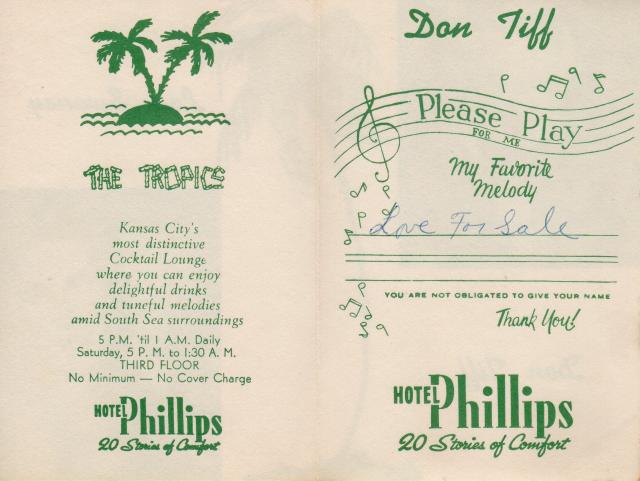 THE TROPICS
Kansas City's
most distinctive
Cocktail Lounge
where you can enjoy
delightful drinks
and tuneful melodies
amid South Sea surroundings
5 P.M. 'til 1 A.M. Daily
Saturday, 5 P. M. to 1:30 A. M.
THIRD FLOOR
No Minimum — No Cover Charge
HOTEL Phillips
20 Stories of Comfort
Don Tiff
Please Play
FOR ME
My Favorite
Melody
Love For Sale
YOU ARE NOT OBLIGATED TO GIVE YOUR NAME
Thank You!
HOTEL Phillips
20 Stories of Comfort